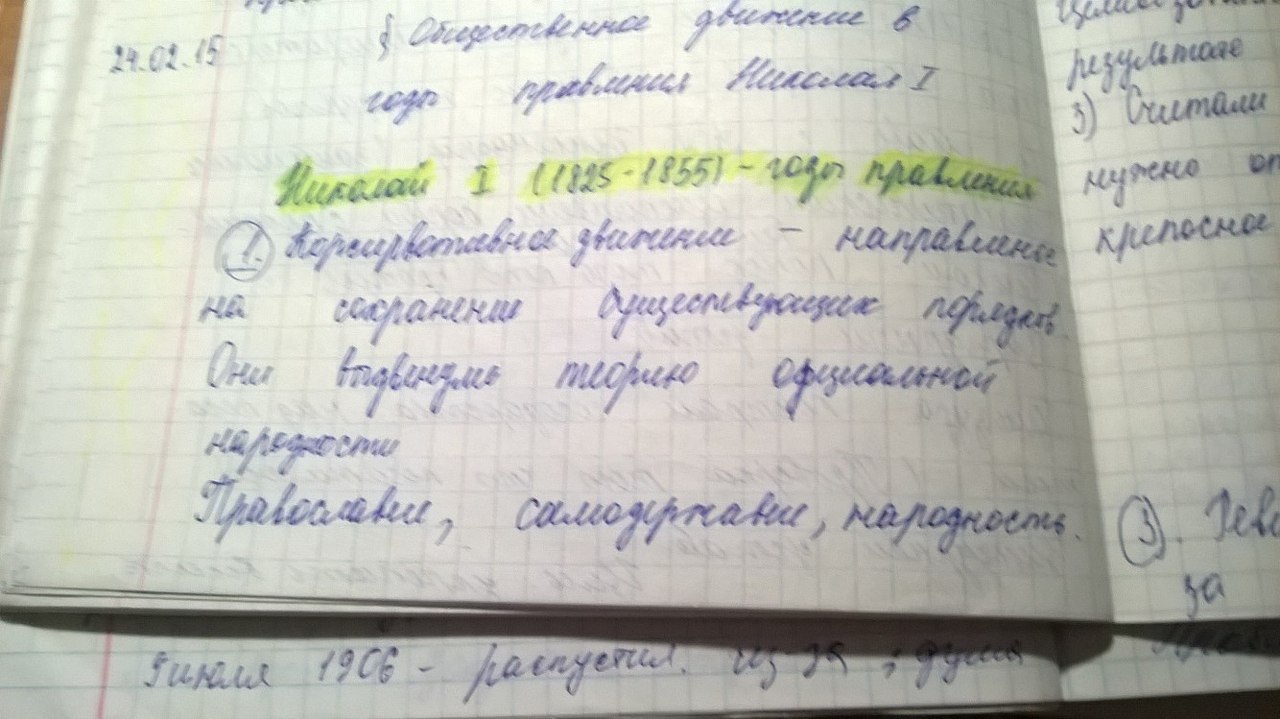 24.02.15
§ Общественное движение в
годы правления Николая I
Николай I (1825-1855) - годы правления
1. Консервативное движение - направленое
на сохранение существующих порядков.
Они выдвинули теорию официальной
народности
Православие, самодержавие, народность.
результате
3) Считали
нужно
крепосное
3.
за
9 июля 1906 - распустил. из-за , дума